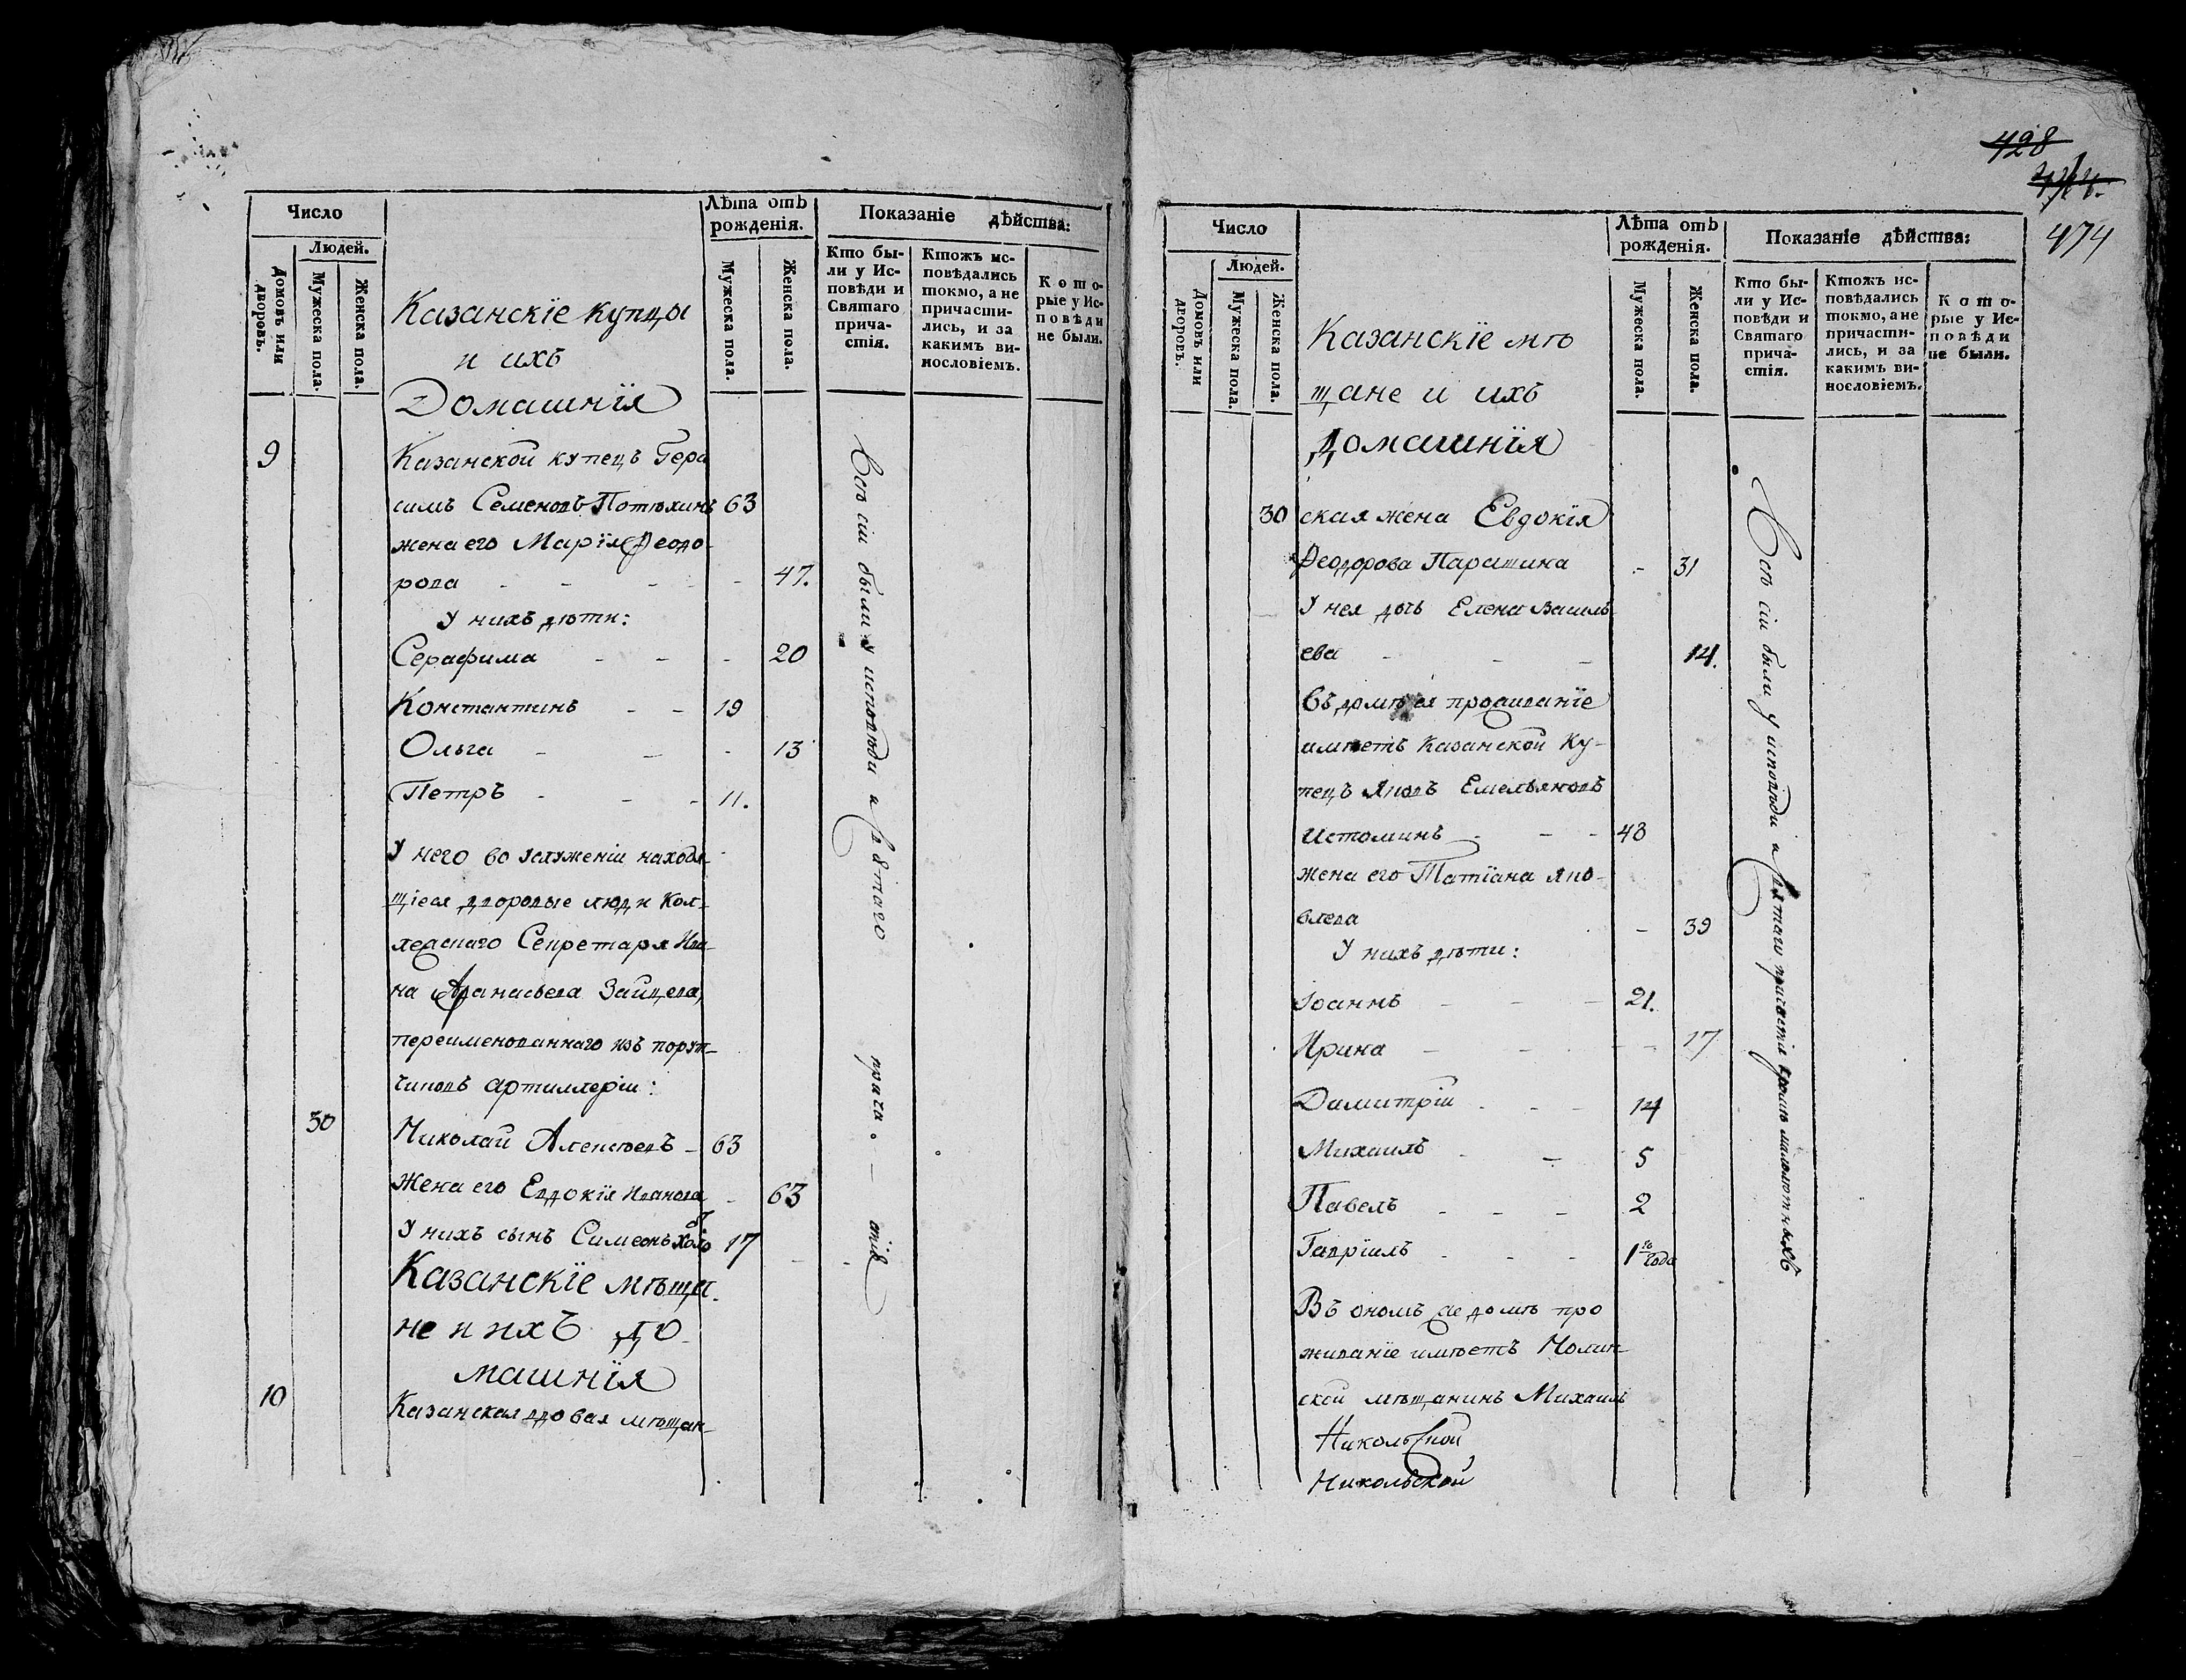 Число
Людей.
Домовъ или дворовъ.
Мужеска пола.
Женска пола.
Лѣта отъ рожденія.
Мужеска пола.
Женска пола.
Показаніе дѣйства:
Кто бы-
ли у Ис-
повѣди и
Святаго
прича-
стія.
Ктожъ ис-
повѣдались
токмо, а не
причасти-
лись, и за
какимъ ви-
нословіемъ.
Кото-
рые у Ис-
повѣди
не были.
Казанскіе купцы
и ихъ
Домашнія
9 Казанской купецъ Гера
симъ Семеновъ Потѣхинъ 63
жена его Марія Ѳеодо-
рова - - - - 47.
У нихъ дѣти:
Серафима - - - 20
Константинъ - - 19
Ольга - - - 13
Петръ - - - 11.
У него во услуженіи находя-
щіеся дворовые люди Кол-
лежскаго Секретаря Ива-
на Аѳанасьева Зайцева,
переименованнаго изъ порут-
чиковъ артиллеріи:
30 Николай Алексѣевъ - 63
Жена его Евдокія Иванова - 63
У нихъ сынъ Симеонъ 17
Казанскіе мѣща-
не и ихъ до-
машнія
10 Казанская вдовая мѣщан-
Всѣ сіи были у исповѣди и Святаго прича - стія
428
474
Число
Людей.
Домовъ или дворовъ.
Мужеска пола.
Женска пола.
Лѣта отъ рожденія.
Мужеска пола.
Женска пола.
Показаніе дѣйства:
Кто бы-
ли у Ис-
повѣди и
Святаго
прича-
стія.
Ктожъ ис-
повѣдались
токмо, а не
причасти-
лись, и за
какимъ ви-
нословіемъ.
Кото-
рые у Ис-
повѣди
не были.
Казанскіе мѣ
щане и ихъ
Домашнія
30 ская жена Евдокія
Ѳеодорова Паратина - 31
У нея дочь Елена Василь
ева - - - 14.
Въ домѣ ея проживаніе
имѣетъ Казанской Ку-
пецъ Яковъ Емельяновъ
Истоминъ - - - 48
жена его Татіана Яко-
влева - 39
У нихъ дѣти:
Іоаннъ - - - 21.
Ирина - - - - 17
Димитрій - - - 14
Михаилъ - - 5
Павелъ - - - 2
Гавріилъ - - - 1го года
Въ ономъ же домѣ про
живаніе имѣетъ Нолин-
ской мѣщанинъ Михаилъ
Никольской
Никольской
Всѣ сіи были у исповѣди и Святаго причастія кромѣ малолѣтныхъ